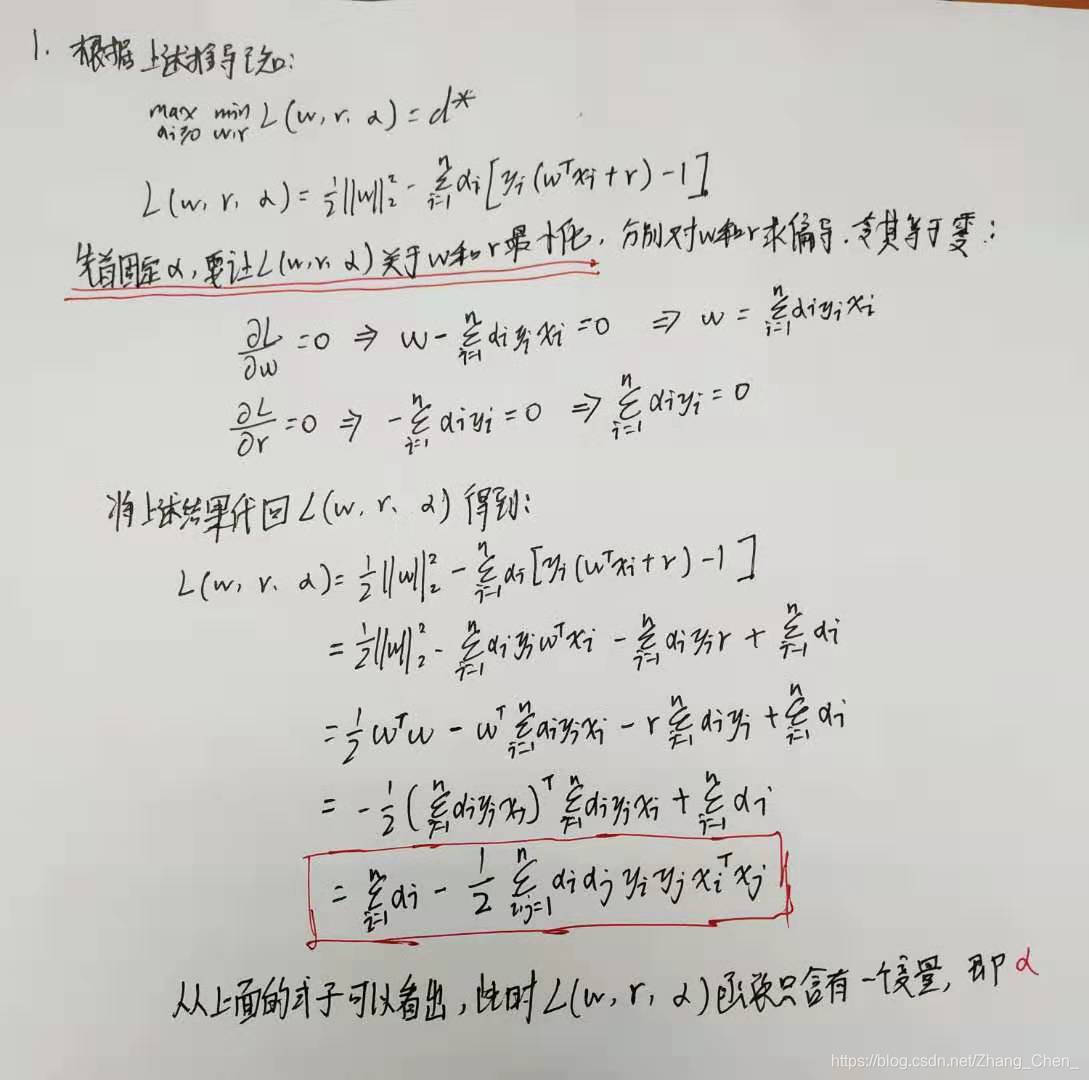 1. 根据上述推导已知:
max min L(w, r, α) = d*
αi≥0 w,r
L(w, r, α) = ½||w||₂² - Σⁿᵢ₌₁ αi[yi(wᵀxi + r) - 1]
先首固定α, 要让L(w, r, α)关于w和r最小化, 分别对w和r求偏导, 令其等于零:
∂L/∂w = 0 ⇒ w - Σⁿᵢ₌₁ αiyixi = 0 ⇒ w = Σⁿᵢ₌₁ αiyixi
∂L/∂r = 0 ⇒ -Σⁿᵢ₌₁ αiyi = 0 ⇒ Σⁿᵢ₌₁ αiyi = 0
将上述结果代回L(w, r, α)得到:
L(w, r, α) = ½||w||₂² - Σⁿᵢ₌₁ αi[yi(wᵀxi + r) - 1]
= ½||w||₂² - Σⁿᵢ₌₁ αiyiwᵀxi - Σⁿᵢ₌₁ αiyir + Σⁿᵢ₌₁ αi
= ½wᵀw - wᵀΣⁿᵢ₌₁ αiyixi - rΣⁿᵢ₌₁ αiyi + Σⁿᵢ₌₁ αi
= -½(Σⁿᵢ₌₁ αiyixi)ᵀ Σⁿᵢ₌₁ αiyixi + Σⁿᵢ₌₁ αi
= Σⁿᵢ₌₁ αi - ½ Σⁿᵢ,ⱼ₌₁ αiαjyiyjxiᵀxj
从上面的式子可以看出, 此时L(w, r, α)函数只含有一个变量, 即α
https://blog.csdn.net/Zhang_Chen_